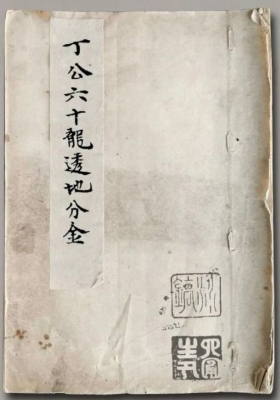 丁公六十龍透地分金